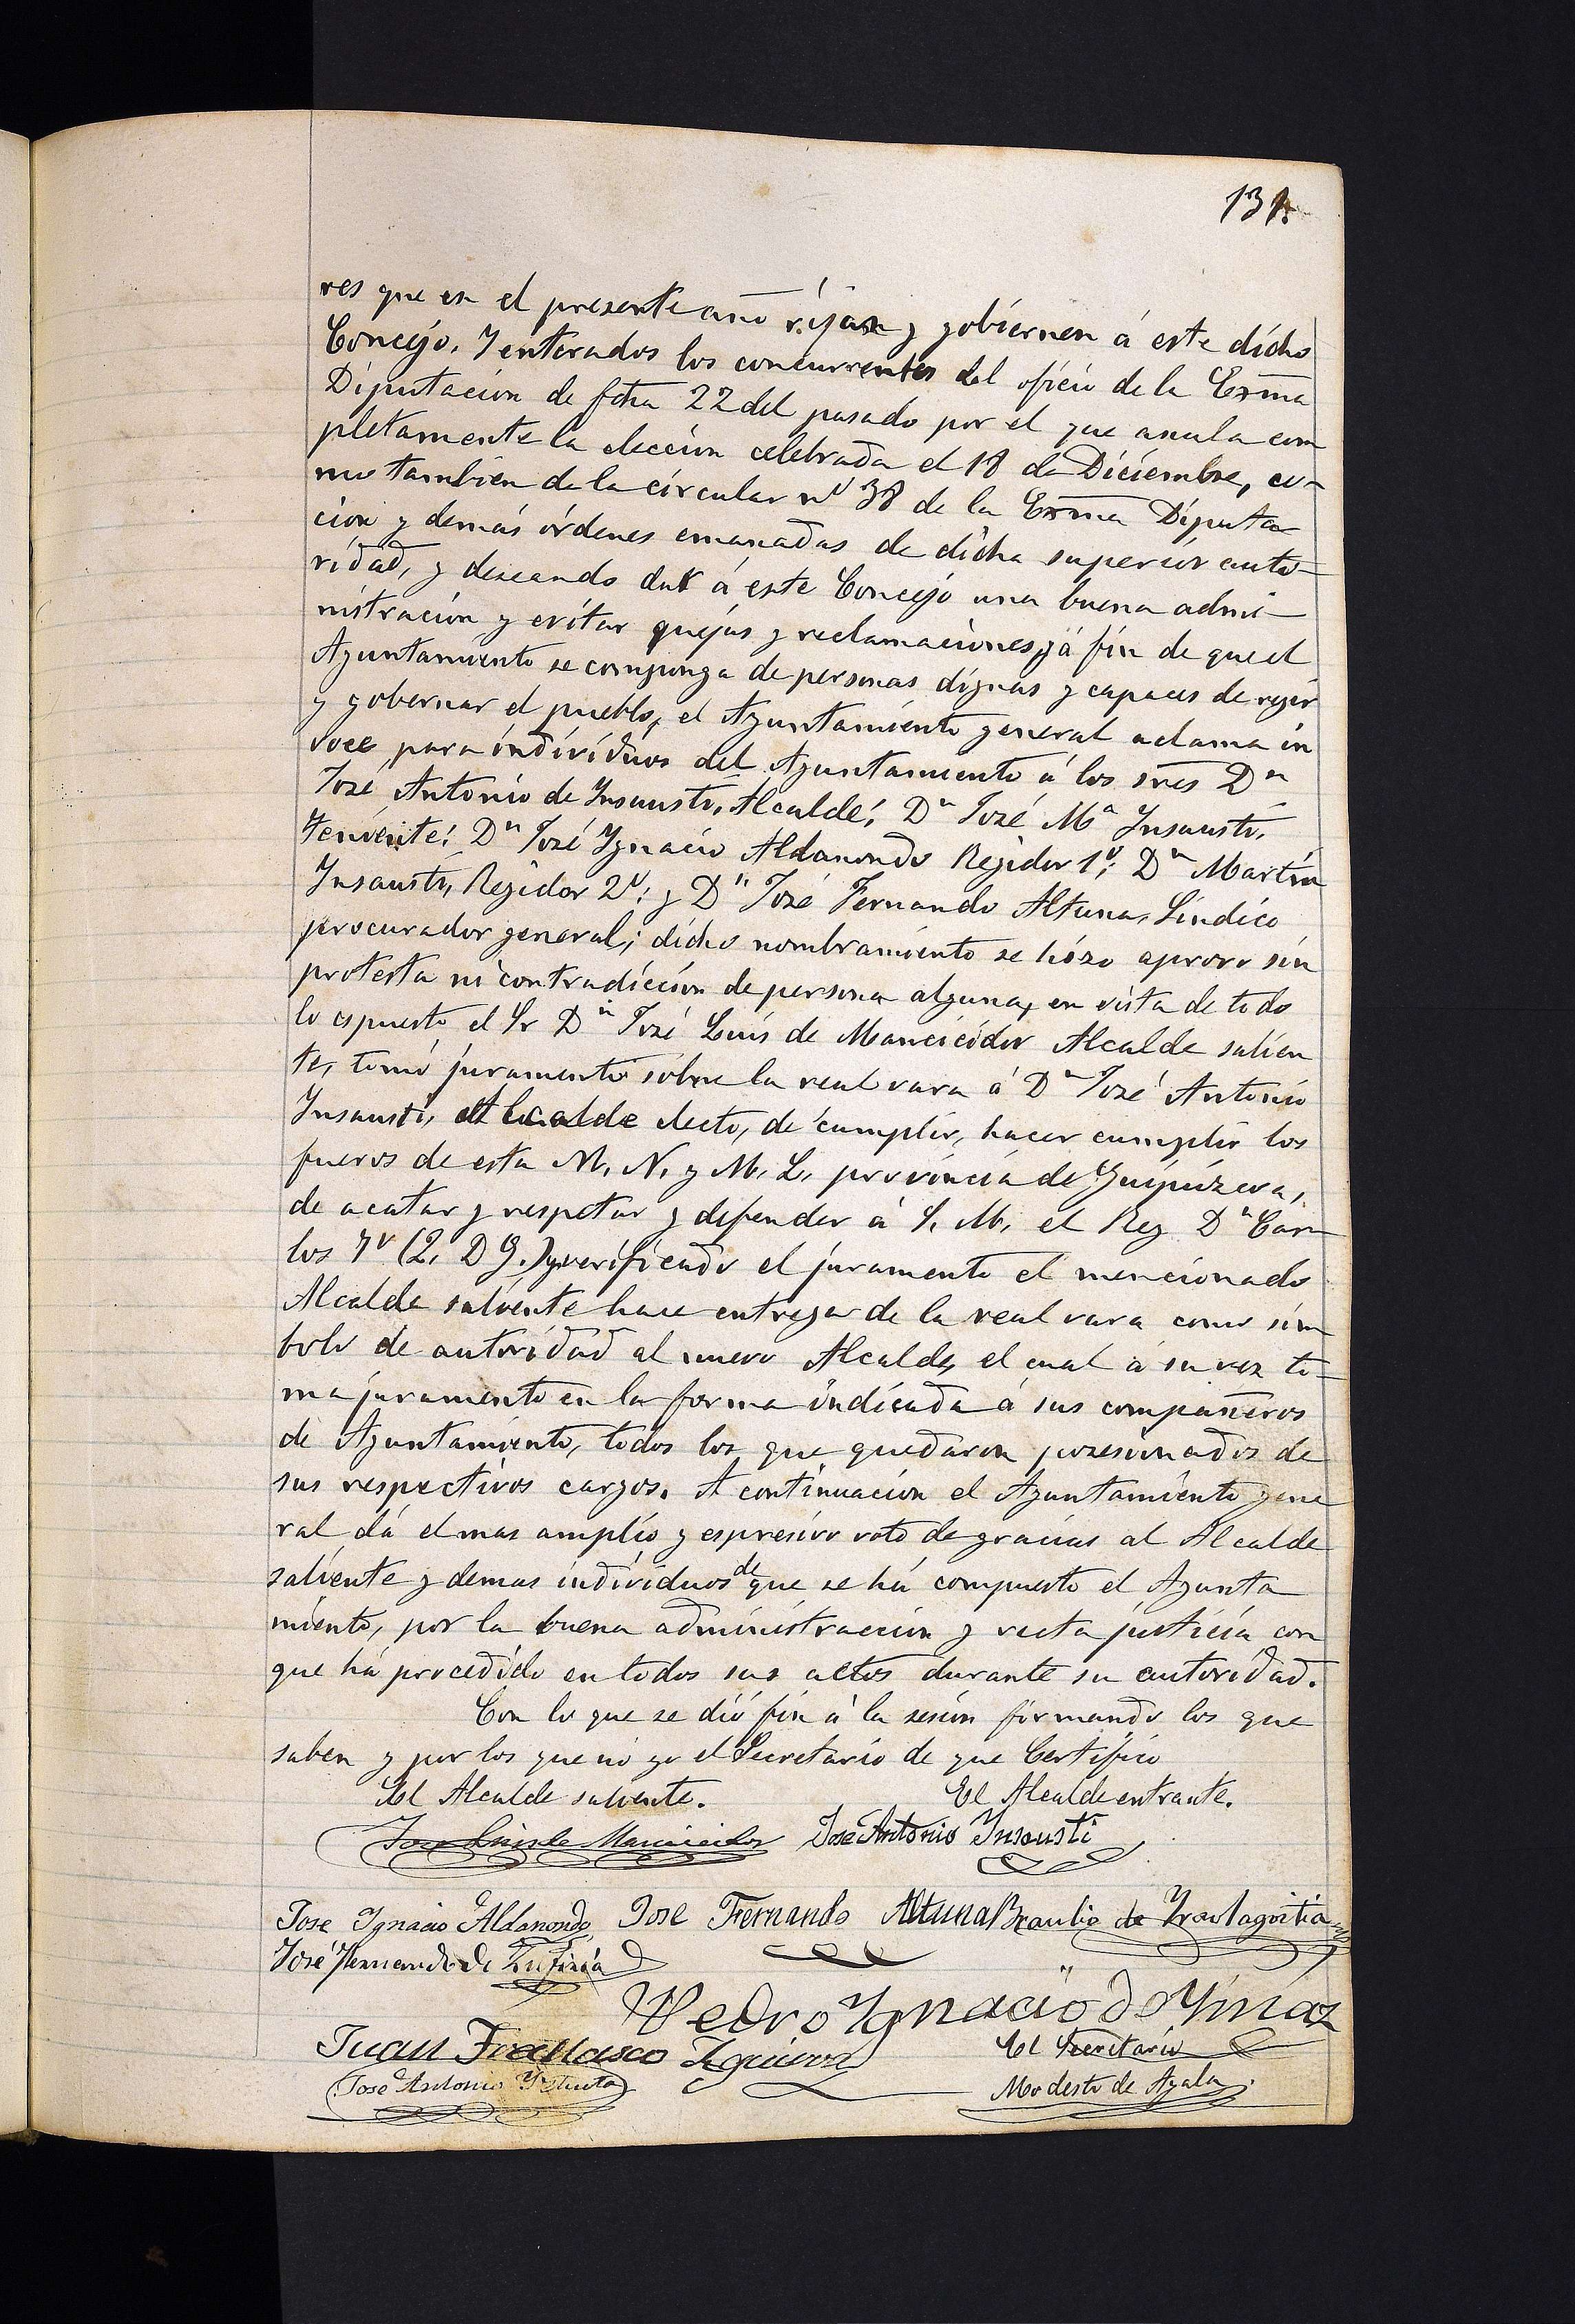 131.
res que en el presente año rijan y gobiernen á este dicho
Concejo. Y enterados los concurrentes del oficio de la Exma
Diputacion de fcha 22 del pasado por el que anula com
pletamente la eleccion celebrada el 18 de Diciembre, co-
mo tambien de la circular nº 38 de la Exma Diputa
cion y demás órdenes emanadas de dicha superior auto-
ridad, y deseando dar á este Concejo una buena admi-
nistracion y evitar quejas y reclamaciones, y á fin de que el
Ayuntamiento se componga de personas dignas y capaces de regir
y gobernar el pueblo, el Ayuntamiento general aclama in
voce para individuos del Ayuntamiento á los sres Dn
José Antonio de Insausti, Alcalde; Dn José Mª Insausti,
Teniente; Dn José Ygnacio Aldanondo Regidor 1º; Dn Martin
Insausti, Regidor 2º; y Dn José Fernando Altuna, Sindico
procurador general; dicho nombramiento se hizo aprovo sin
protesta ni contradiccion de persona alguna, en vista de todo
lo espuesto el Sr Dn José Luis de Mancicidor Alcalde salien
te, tomó juramento sobre la real vara á Dn José Antonio
Insausti, Alcalde electo, de cumplir, hacer cumplir los
fueros de esta M. N. y M. L. provincia de Guipúzcoa,
de acatar y respetar y defender á S. M. el Rey Dn Cár-
los 7º (Q. D G.) y verificado el juramento el mencionado
Alcalde saliente hace entrega de la real vara como sim
bolo de autoridad al nuevo Alcalde, el cual á su vez to-
ma juramento en la forma indicada á sus compañeros
de Ayuntamiento, todos los que quedaron posesionados de
sus respectivos cargos. A continuacion el Ayuntamiento gene
ral dá el mas amplio y espresivo voto de gracias al Alcalde
saliente y demas individuos de que se há compuesto el Ayunta
miento, por la buena administraccion y recta justicia con
que há procedido en todos sus actos durante su autoridad.
Con lo que se dió fin á la sesion firmando los que
saben y por los que no yo el Secretario de que Certifico
El Alcalde saliente. El Alcalde entrante.
José Luis de Mancicidor José Antonio Insausti
Jose Ygnacio Aldanondo Jose Fernando Altuna Braulio de Yraolagoitia
José Fernando de
Pedro Ygnacio de Ymaz
Juan Francisco Eguiera El Secretario
Jose Antonio Modesto de Ayala